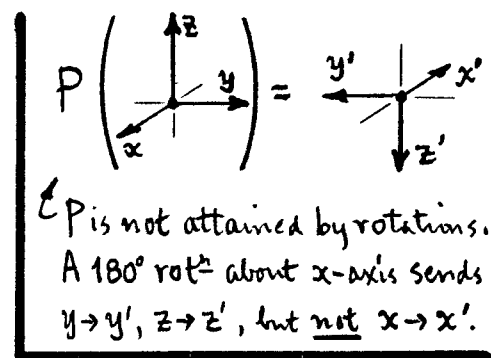 P ( z y x ) = y' x' z'
P is not attained by rotations.
A 180° rotⁿ about x-axis sends
y→y', z→z', but not x→x'.